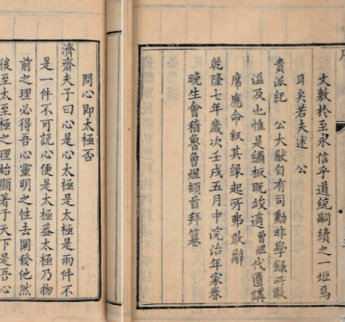 文數於至永信乎道統嗣續之一短焉
耳矣若夫述 公
貴派紀 公大猷自有司勳非學錄所敢
溫及也惟是鋪板既竣適曾煜代匱講
席應命叙其緣起所弗敢辭
乾隆七年歲次壬戌五月中浣治年家眷
晚生會稽魯曾煜頓首拜篹
問心即太極否
濟齋夫子曰心是心太極是太極是兩件不
是一件不可說心便是太極葢太極乃物
前之理必得吾心靈明之性去闡發他然
後至太至極之理始顯著于天下是吾心